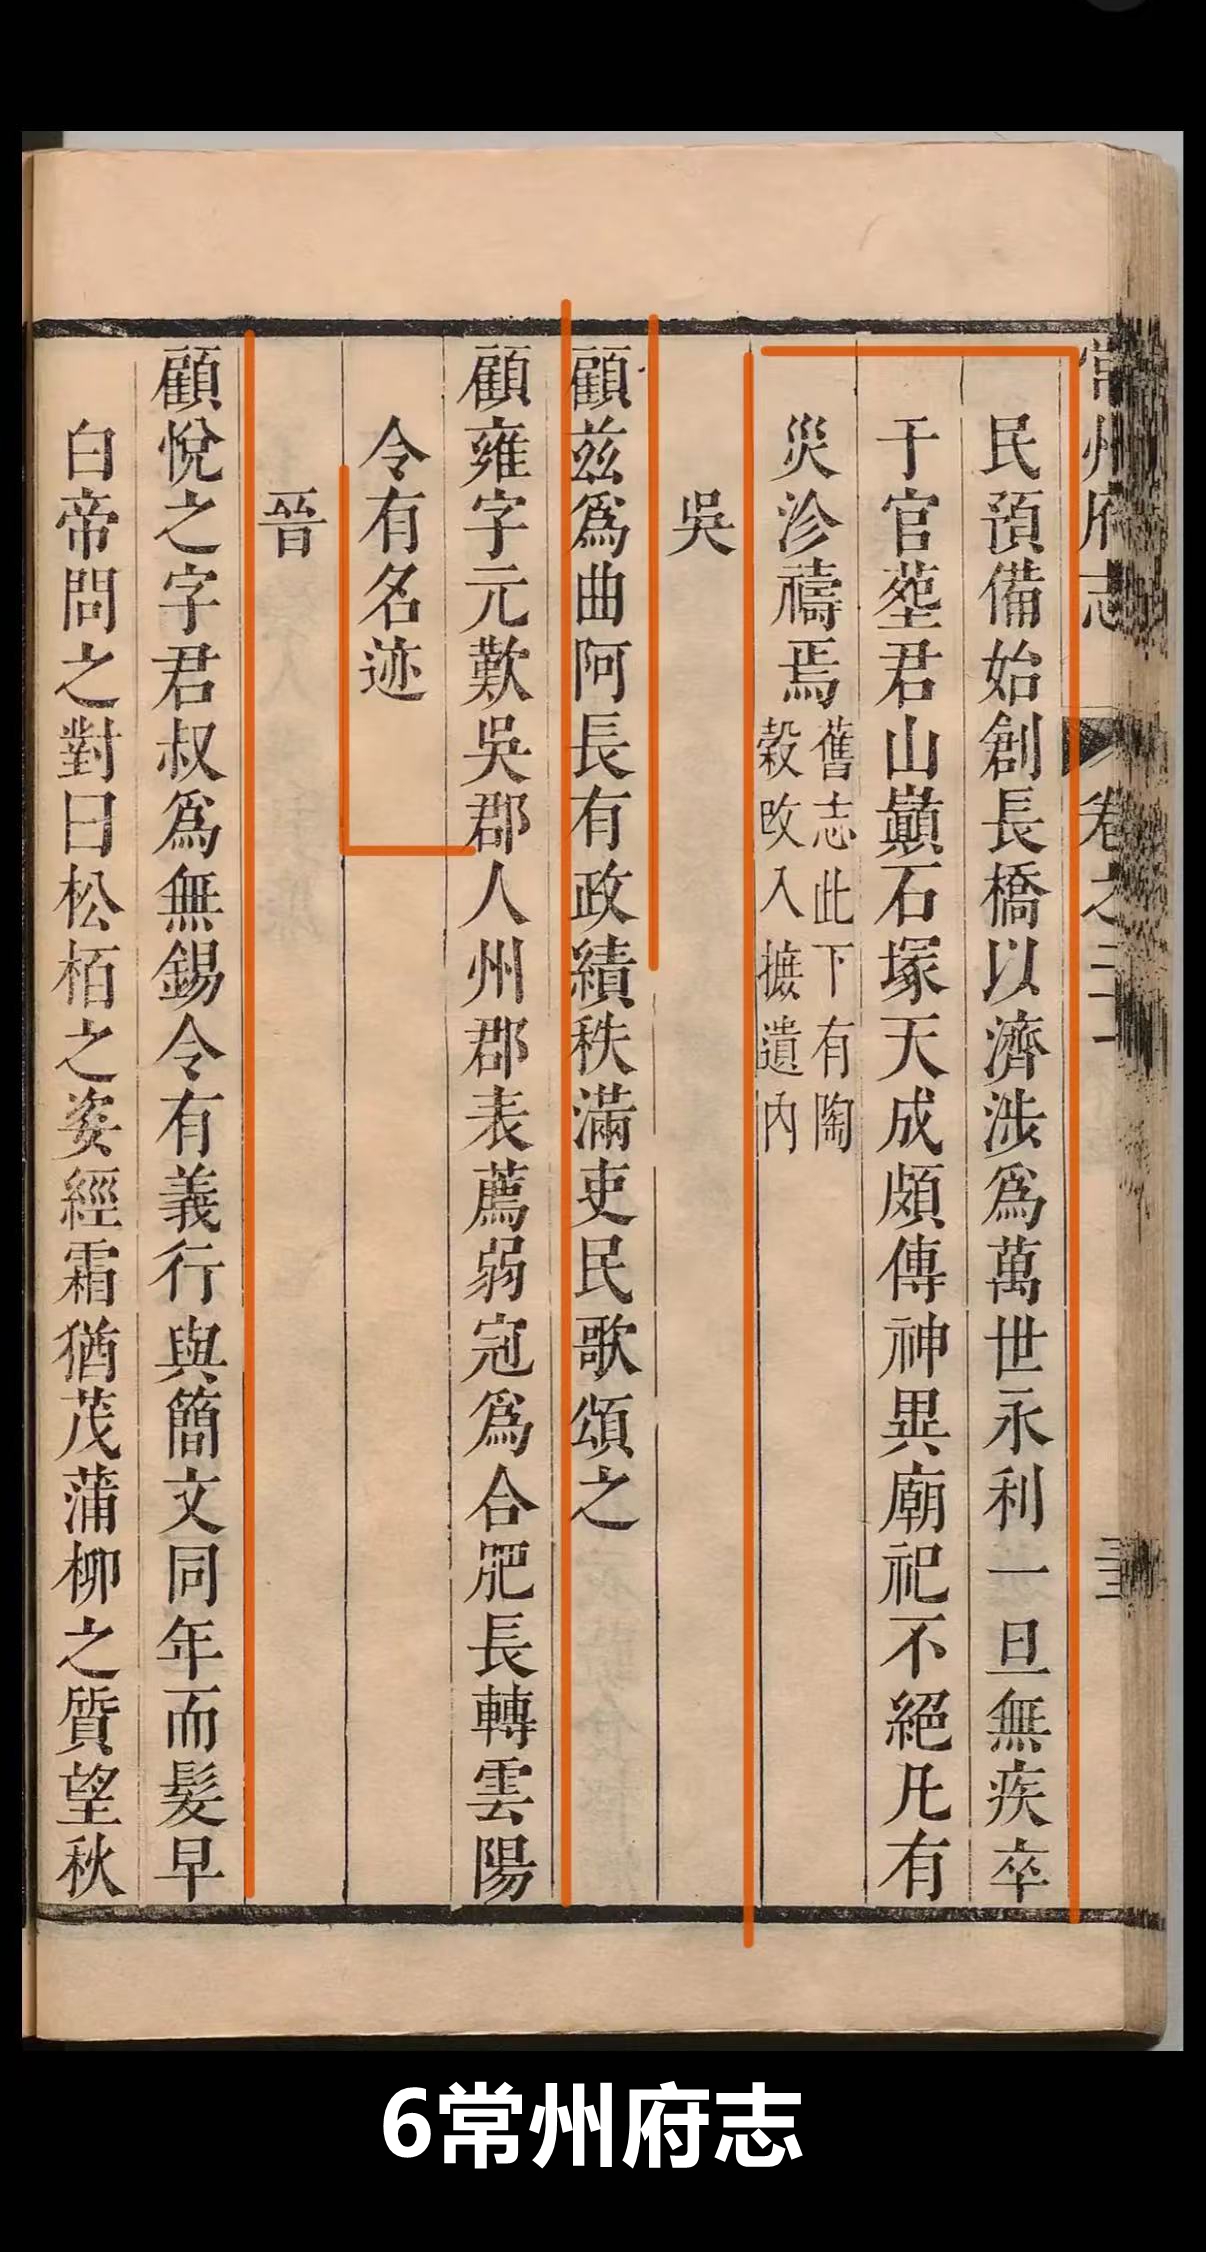 常州府志 卷之二十
民預備始創長橋以濟涉爲萬世永利一旦無疾卒
于官塟君山巔石塚天成頗傳神異廟祀不絕凡有
災沴禱焉舊志此下有陶
穀攺入摭遺內
吳
顧兹爲曲阿長有政績秩滿吏民歌頌之
顧雍字元歎吳郡人州郡表薦弱冠爲合肥長轉雲陽
令有名迹
晉
顧悅之字君叔爲無錫令有義行與簡文同年而髮早
白帝問之對曰松栢之姿經霜猶茂蒲柳之質望秋
6常州府志